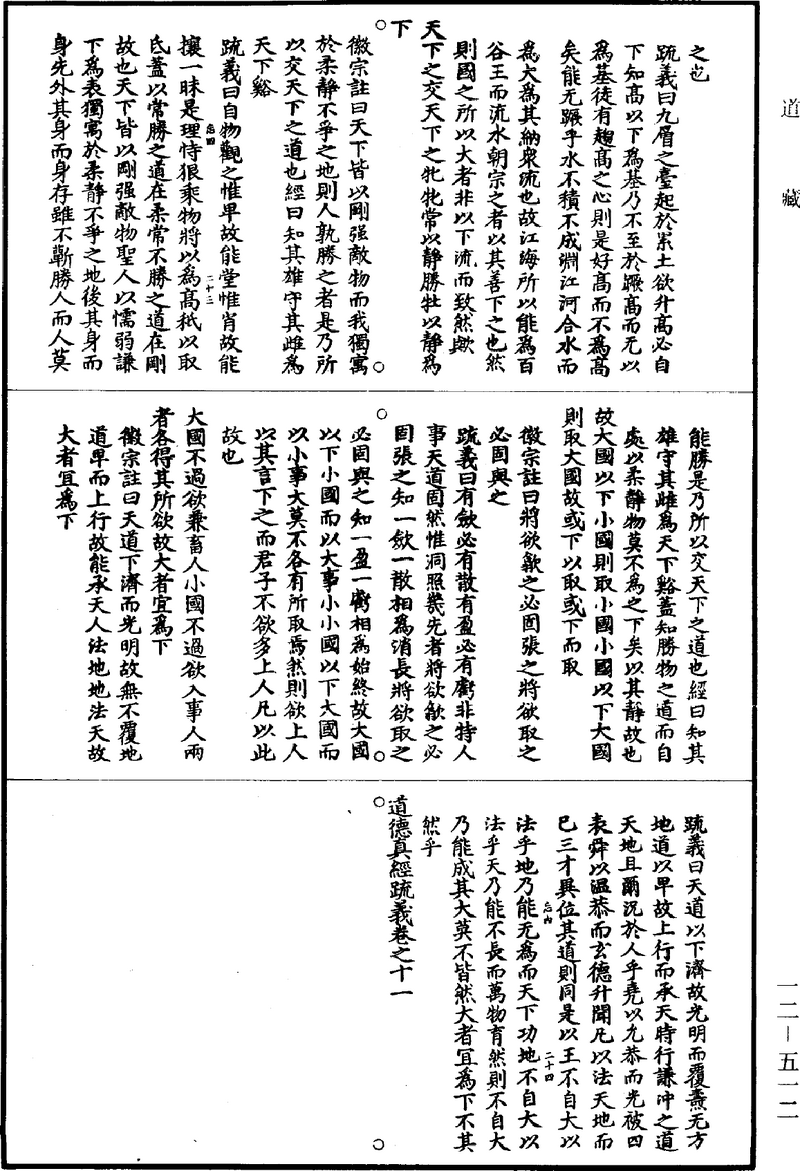 道藏
之也
疏義曰九層之臺起於累土欲升高必自
下知高以下為基乃不至於蹶高而无以
為基徒有趨高之心則是好高而不為高
矣能无蹶乎水不積不成淵江河合水而
為大為其納衆流也故江海所以能為百
谷王而流水朝宗之者以其善下之也然
則國之所以大者非以下流而致然歟
天下之交天下之牝牝常以静勝牡以静為
下
徽宗註曰天下皆以剛强敵物而我獨寓
於柔静不爭之地則人孰勝之者是乃所
以交天下之道也經曰知其雄守其雌為
天下谿
疏義曰自物觀之惟卑故能堂惟肖故能
攘一昧是理恃狠乘物將以為高秖以取
忘四
二十三
氏蓋以常勝之道在柔常不勝之道在剛
故也天下皆以剛强敵物聖人以懦弱謙
下為表獨寓於柔静不爭之地後其身而
身先外其身而身存雖不蘄勝人而人莫
能勝是乃所以交天下之道也經曰知其
雄守其雌為天下谿蓋知勝物之道而自
處以柔静物莫不為之下矣以其静故也
故大國以下小國則取小國小國以下大國
則取大國故或下以取或下而取
徽宗註曰將欲歙之必固張之將欲取之
必固與之
疏義曰有斂必有散有盈必有虧非特人
事天道固然惟洞照幾先者將欲歙之必
固張之知一斂一散相為消長將欲取之
必固與之知一盈一虧相為始終故大國
以下小國而以大事小小國以下大國而
以小事大莫不各有所取焉然則欲上人
以其言下之而君子不欲多上人凡以此
故也
大國不過欲兼畜人小國不過欲入事人兩
者各得其所欲故大者宜為下
徽宗註曰天道下濟而光明故無不覆地
道卑而上行故能承天人法地地法天故
大者宜為下
疏義曰天道以下濟故光明而覆燾无方
地道以卑故上行而承天時行謙沖之道
天地且爾況於人乎堯以允恭而光被四
表舜以温恭而玄德升聞凡以法天地而
已三才異位其道則同是以王不自大以
忘六
二十四
法乎地乃能无為而天下功地不自大以
法乎天乃能不長而萬物育然則不自大
乃能成其大莫不皆然大者宜為下不其
然乎
道德真經疏義卷之十一
一二—五一二